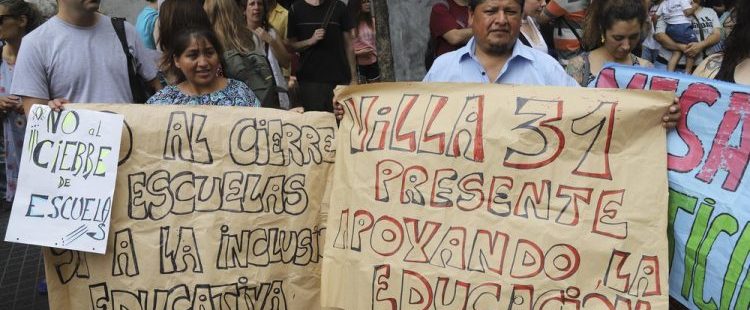 NO al
CIERRE
DE
ESCUELAS
NO AL CIERRE
ESCUELAS
SI A LA INCLUSI
EDUCATIVA
VILLA 31
PRESENTE
APOYANDO LA
EDUCACIÓN
MESA